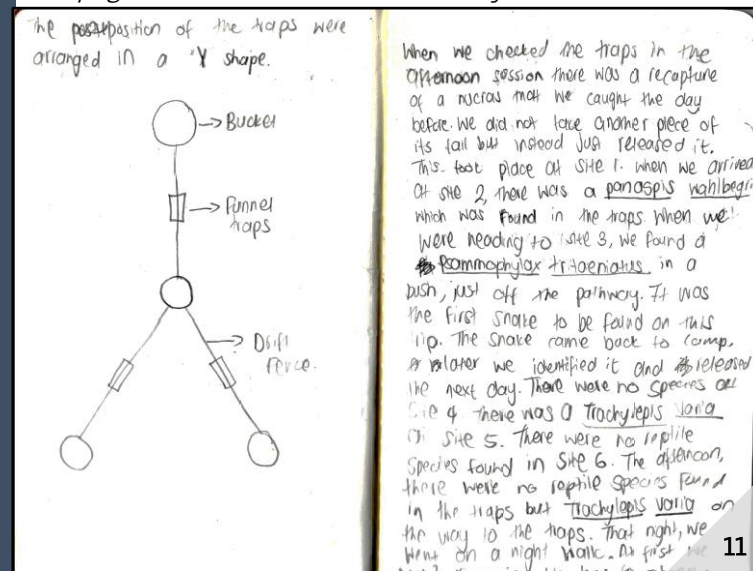 The position of the traps were
arranged in a "Y shape.
Bucket
Funnel
traps
Drift
fence.
When we checked the traps in the
afternoon session there was a recapture
of a nucras that we caught the day
before. We did not take another piece of
its tail but instead just released it.
This took place at site 1. When we arrived
at site 2, there was a panaspis wahlbegri
which was found in the traps. When we
were heading to site 3, we found a
Psammophylax tritaeniatus in a
bush, just off the pathway. It was
the first snake to be found on this
trip. The snake came back to camp,
later we identified it and released
the next day. There were no species at
Site 4 there was a Trachylepis varia
Site 5. There were no reptile
species found in Site 6. The afternoon,
there were no reptile species found
in the traps but Trachylepis varia on
the way to the traps. That night, we
went on a night walk. At first we
11